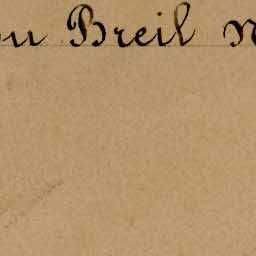 ou Breil